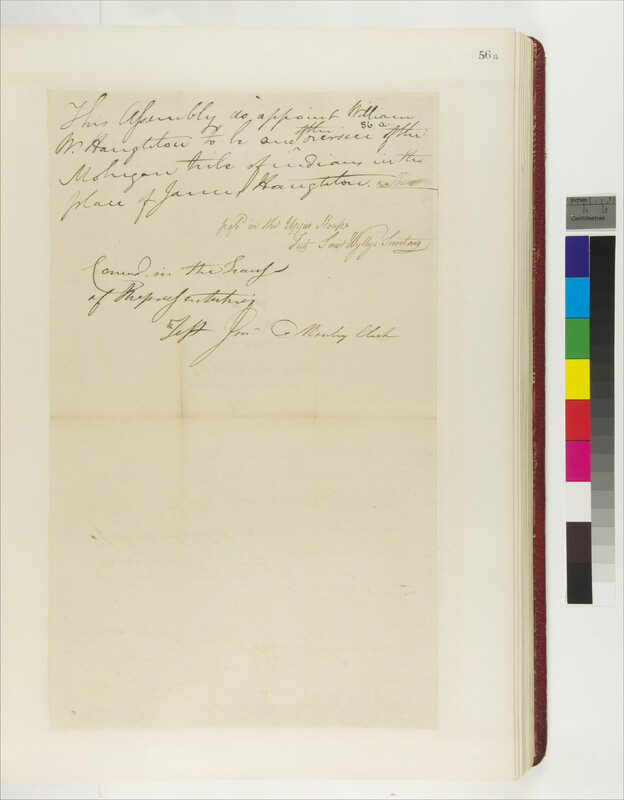 56a
This Assembly do appoint William
56 a
W. Haughton to be one of the overseers of the
Mohegan tribe of indians in the
place of James Haughton.
pass'd in the Upper House
Test Sam Wyllys Secretary
Concurd. in the House
of Representatives
Test Jon
Clerk
Inches
1 2
Centimetres